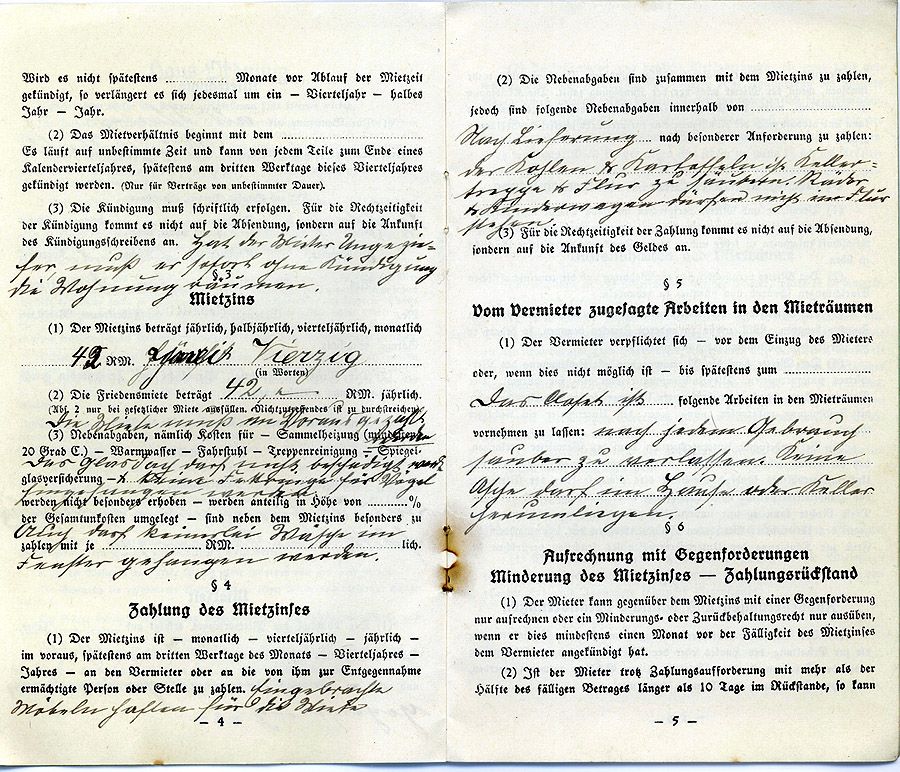 Wird es nicht spätestens ............ Monate vor Ablauf der Mietzeit
gekündigt, so verlängert es sich jedesmal um ein – Vierteljahr – halbes
Jahr – Jahr.
(2) Das Mietverhältnis beginnt mit dem ............
Es läuft auf unbestimmte Zeit und kann von jedem Teile zum Ende eines
Kalendervierteljahres, spätestens am dritten Werktage dieses Vierteljahres
gekündigt werden. (Nur für Verträge von unbestimmter Dauer).
(3) Die Kündigung muß schriftlich erfolgen. Für die Rechtzeitigkeit
der Kündigung kommt es nicht auf die Absendung, sondern auf die Ankunft
des Kündigungsschreibens an. Hat der Mieter Ungezie-
fer muß er sofort ohne Kündigung
§ 3
die Wohnung räumen.
Mietzins
(1) Der Mietzins beträgt jährlich, halbjährlich, vierteljährlich, monatlich
42 RM. Vierzig
(in Worten)
(2) Die Friedensmiete beträgt 42,- RM. jährlich.
(Abs. 2 nur bei gesetzlicher Miete ausfüllen. Nichtzutreffendes ist zu durchstreichen)
Die Miete muß im Voraus gezahlt
(3) Nebenabgaben, nämlich Kosten für – Sammelheizung (mindestens
20 Grad C.) – Warmwasser – Fahrstuhl – Treppenreinigung – Spiegel-
Das Glasdach darf nicht beschädigt
glasversicherung – keine für Vogel
werden
werden nicht besonders erhoben – werden anteilig in Höhe von ............%
der Gesamtunkosten umgelegt – sind neben dem Mietzins besonders zu
Auch darf keinerlei Wäsche im
zahlen mit je ............ RM. ............ lich.
Fenster gehangen werden.
§ 4
Zahlung des Mietzinses
(1) Der Mietzins ist – monatlich – vierteljährlich – jährlich –
im voraus, spätestens am dritten Werktage des Monats – Vierteljahres –
Jahres – an den Vermieter oder an die von ihm zur Entgegennahme
ermächtigte Person oder Stelle zu zahlen. Eingebrachte
Möbeln haften für die Miete
– 4 –
(2) Die Nebenabgaben sind zusammen mit dem Mietzins zu zahlen,
jedoch sind folgende Nebenabgaben innerhalb von ............
Nach Lieferung nach besonderer Anforderung zu zahlen:
der Kohlen & Kartoffeln ist Keller-
treppe & Flur zu säubern. Räder
& Kinderwagen dürfen nicht im Flur
stehen.
(3) Für die Rechtzeitigkeit der Zahlung kommt es nicht auf die Absendung,
sondern auf die Ankunft des Geldes an.
§ 5
Vom Vermieter zugesagte Arbeiten in den Mieträumen
(1) Der Vermieter verpflichtet sich – vor dem Einzug des Mieters
oder, wenn dies nicht möglich ist – bis spätestens zum ............
Das Closet ist folgende Arbeiten in den Mieträumen
vornehmen zu lassen: nach jedem Gebrauch
sauber zu verlassen. Keine
Asche darf im Hause oder Keller
herumliegen.
§ 6
Aufrechnung mit Gegenforderungen
Minderung des Mietzinses — Zahlungsrückstand
(1) Der Mieter kann gegenüber dem Mietzins mit einer Gegenforderung
nur aufrechnen oder ein Minderungs- oder Zurückbehaltungsrecht nur ausüben,
wenn er dies mindestens einen Monat vor der Fälligkeit des Mietzinses
dem Vermieter angekündigt hat.
(2) Ist der Mieter trotz Zahlungsaufforderung mit mehr als der
Hälfte des fälligen Betrages länger als 10 Tage im Rückstande, so kann
– 5 –